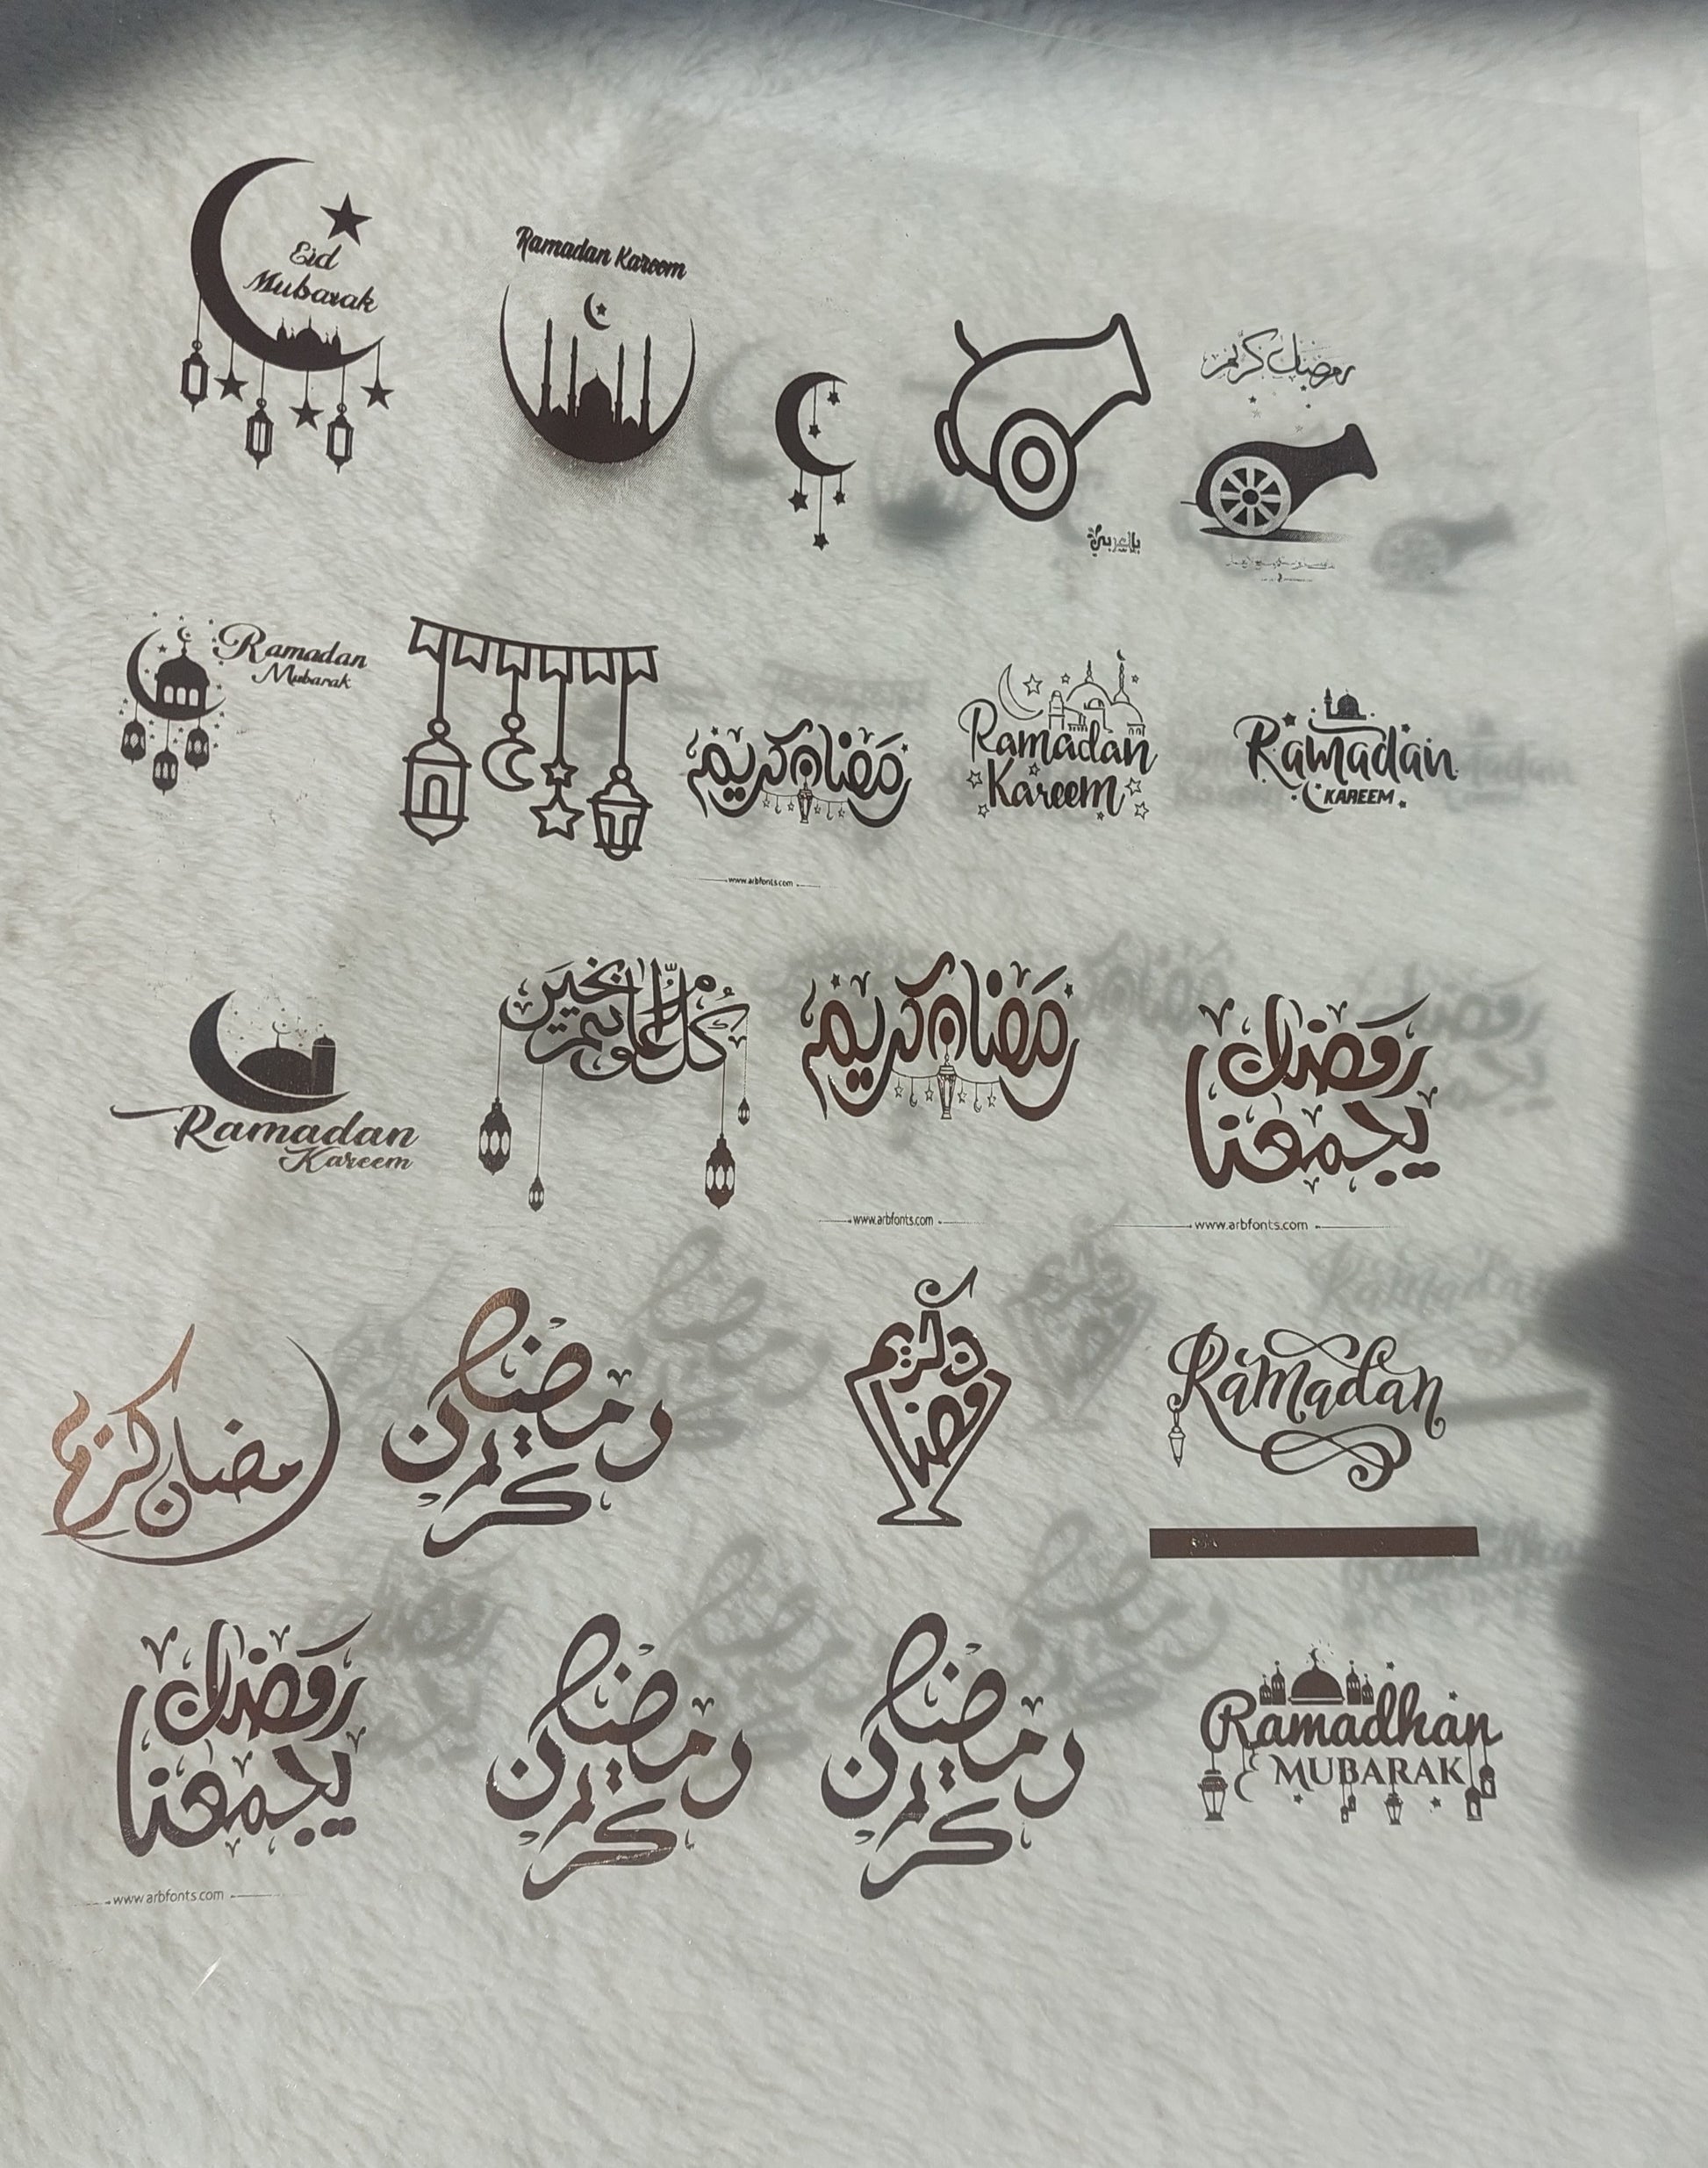 Eid
Mubarak
Ramadan Kareem
بالعربي
رمضان كريم
Ramadan
Mubarak
رمضان كريم
www.arbfonts.com
Ramadan
Kareem
Ramadan
KAREEM
Ramadan
Kareem
كُلُّ عام وأنتم بخير
رمضان كريم
www.arbfonts.com
رمضان
يجمعنا
www.arbfonts.com
رمضان كريم
رمضان
كريم
رمضان كريم
Ramadan
رمضان
يجمعنا
www.arbfonts.com
رمضان
كريم
رمضان
كريم
Ramadhan
MUBARAK